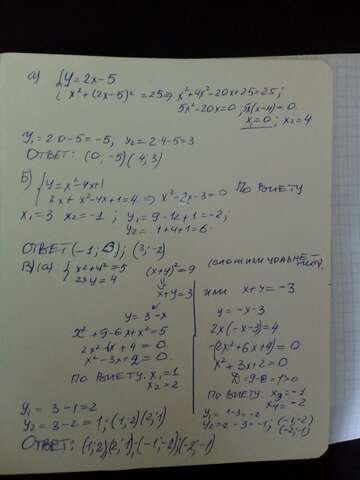 а) { y = 2x-5
x² + (2x-5)² = 25 ⇒ x²+4x²-20x+25=25;
5x²-20x=0; 5x(x-4)=0.
x₁=0; x₂=4
y₁ = 2·0-5=-5; x₂=2·4-5=3
Ответ: (0, -5) (4, 3)
Б) { y = x²-4x+1
2x + x²-4x+1=4 ⇒ x²-2x-3=0 по Виету
x₁=3 x₂=-1 ; y₁=9-12+1=-2;
y₂= 1+4+1=6.
Ответ (-1; 6); (3; -2)
В) (а) { x²+y²=5 (x+y)²=9 (сложим уравнения),
2xy=4
x+y=3
или x+y=-3
y=3-x
y=-x-3
x²+9-6x+x²=5
2x(-x-3)=4
2x²-6x+4=0.
x²-3x+2=0.
x²+3x+2=0
D=9-8=1>0
по Виету: x₁=1
x₂=2
по Виету: x₃=-1
x₄=-2
y₁ = 3-1=2
y₂=3-2=1; (1;2)(2;1)
y₁=1-3=-2
(-1;-2)
(-2;-1)
Ответ: (1;2)(2;1);(-1;-2),(-2;-1)